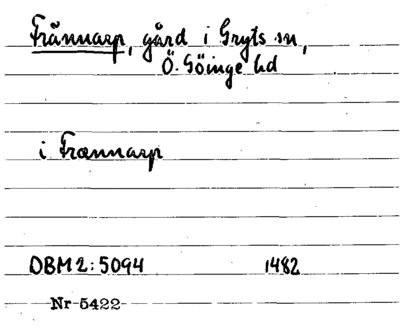 Frännarp, gård i Gryts sn,
Ö. Göinge hd
i Frænnarp
DBM 2:5094 1482
Nr 5422